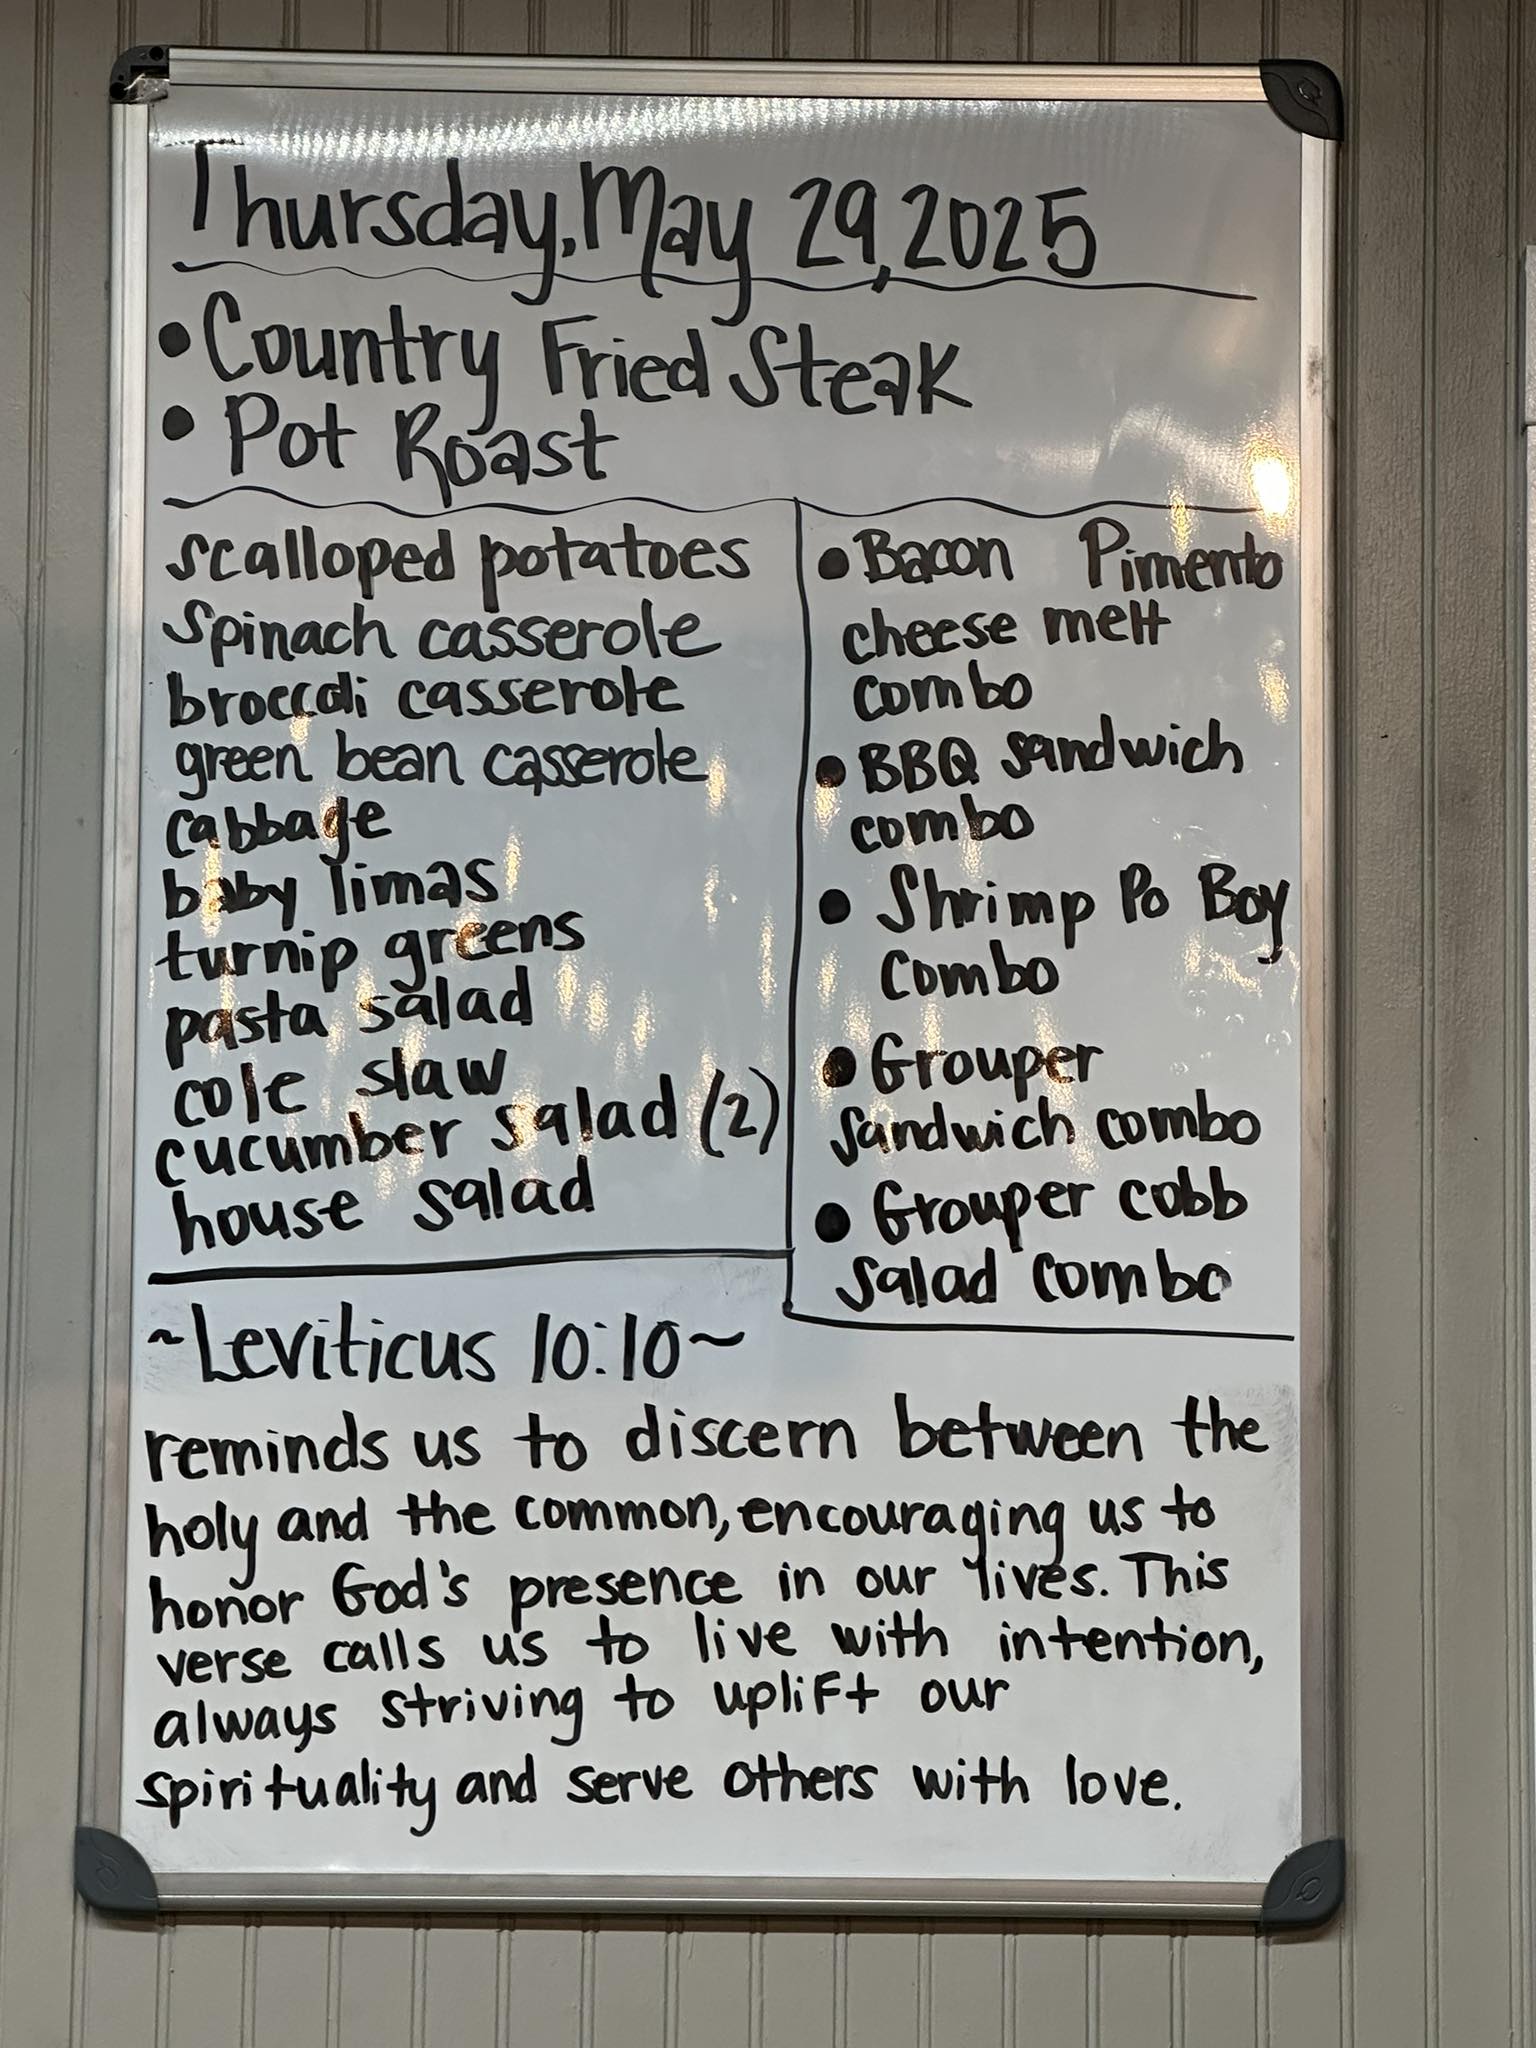 Thursday, May 29, 2025
• Country Fried Steak
• Pot Roast
scalloped potatoes
Spinach casserole
broccoli casserole
green bean casserole
cabbage
baby limas
turnip greens
pasta salad
cole slaw
cucumber salad (2)
house salad
• Bacon Pimento
cheese melt
combo
• BBQ sandwich
combo
• Shrimp Po Boy
Combo
• Grouper
sandwich combo
• Grouper cobb
salad combo
~Leviticus 10:10~
reminds us to discern between the
holy and the common, encouraging us to
honor God's presence in our lives. This
verse calls us to live with intention,
always striving to uplift our
spirituality and serve others with love.